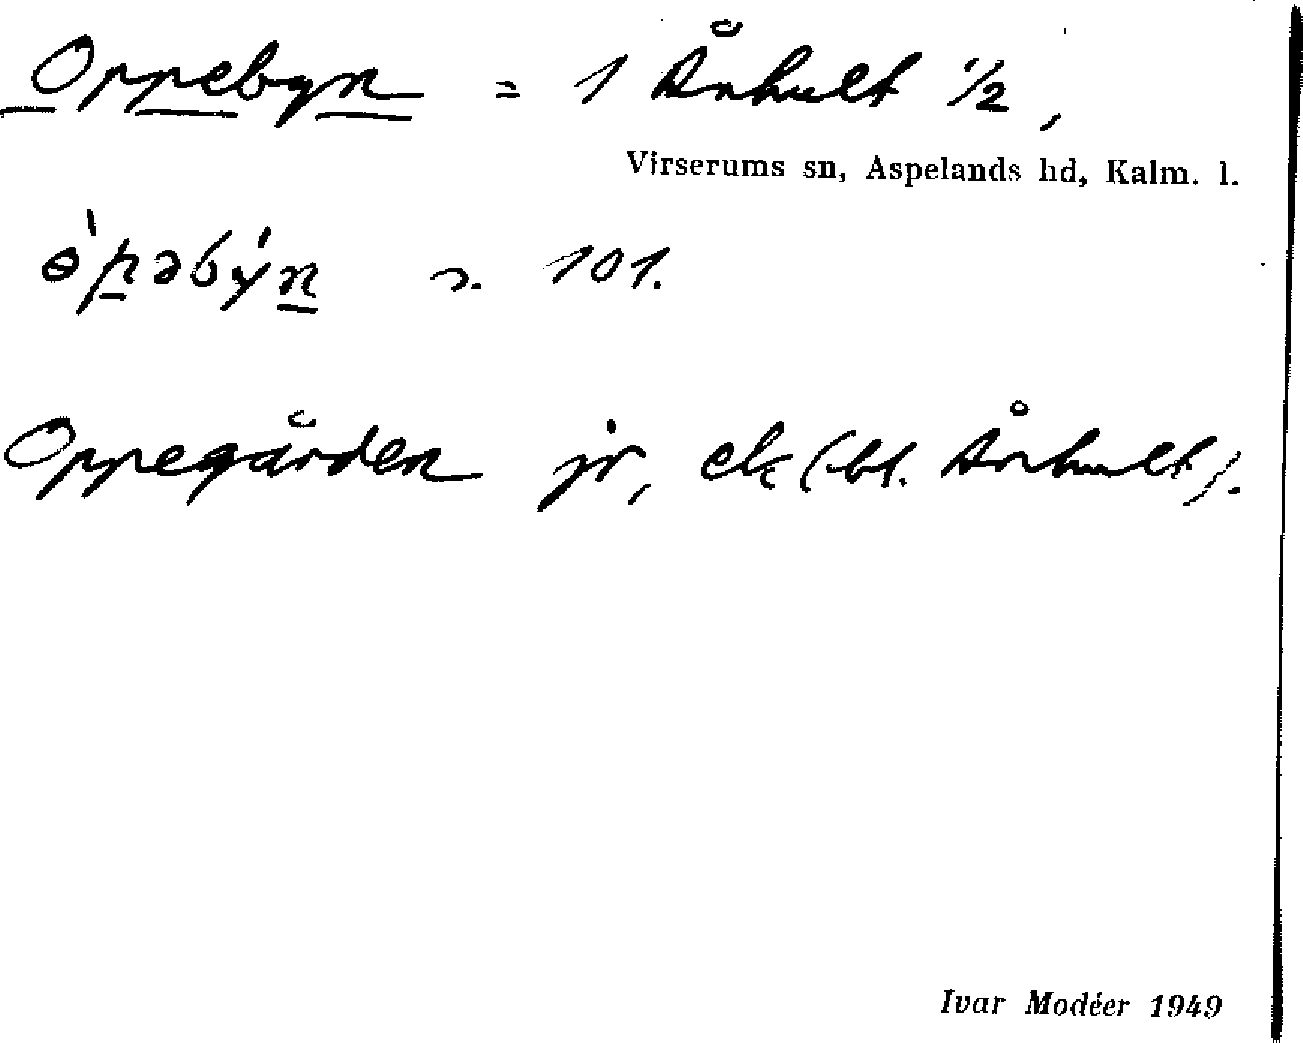 Oppebyn = 1 Ånhult 1/2,
Virserums sn, Aspelands hd, Kalm. l.
ɵ̀pəbýn s. 101.
Oppegården jr, ek (bl. Ånhult).
Ivar Modéer 1949